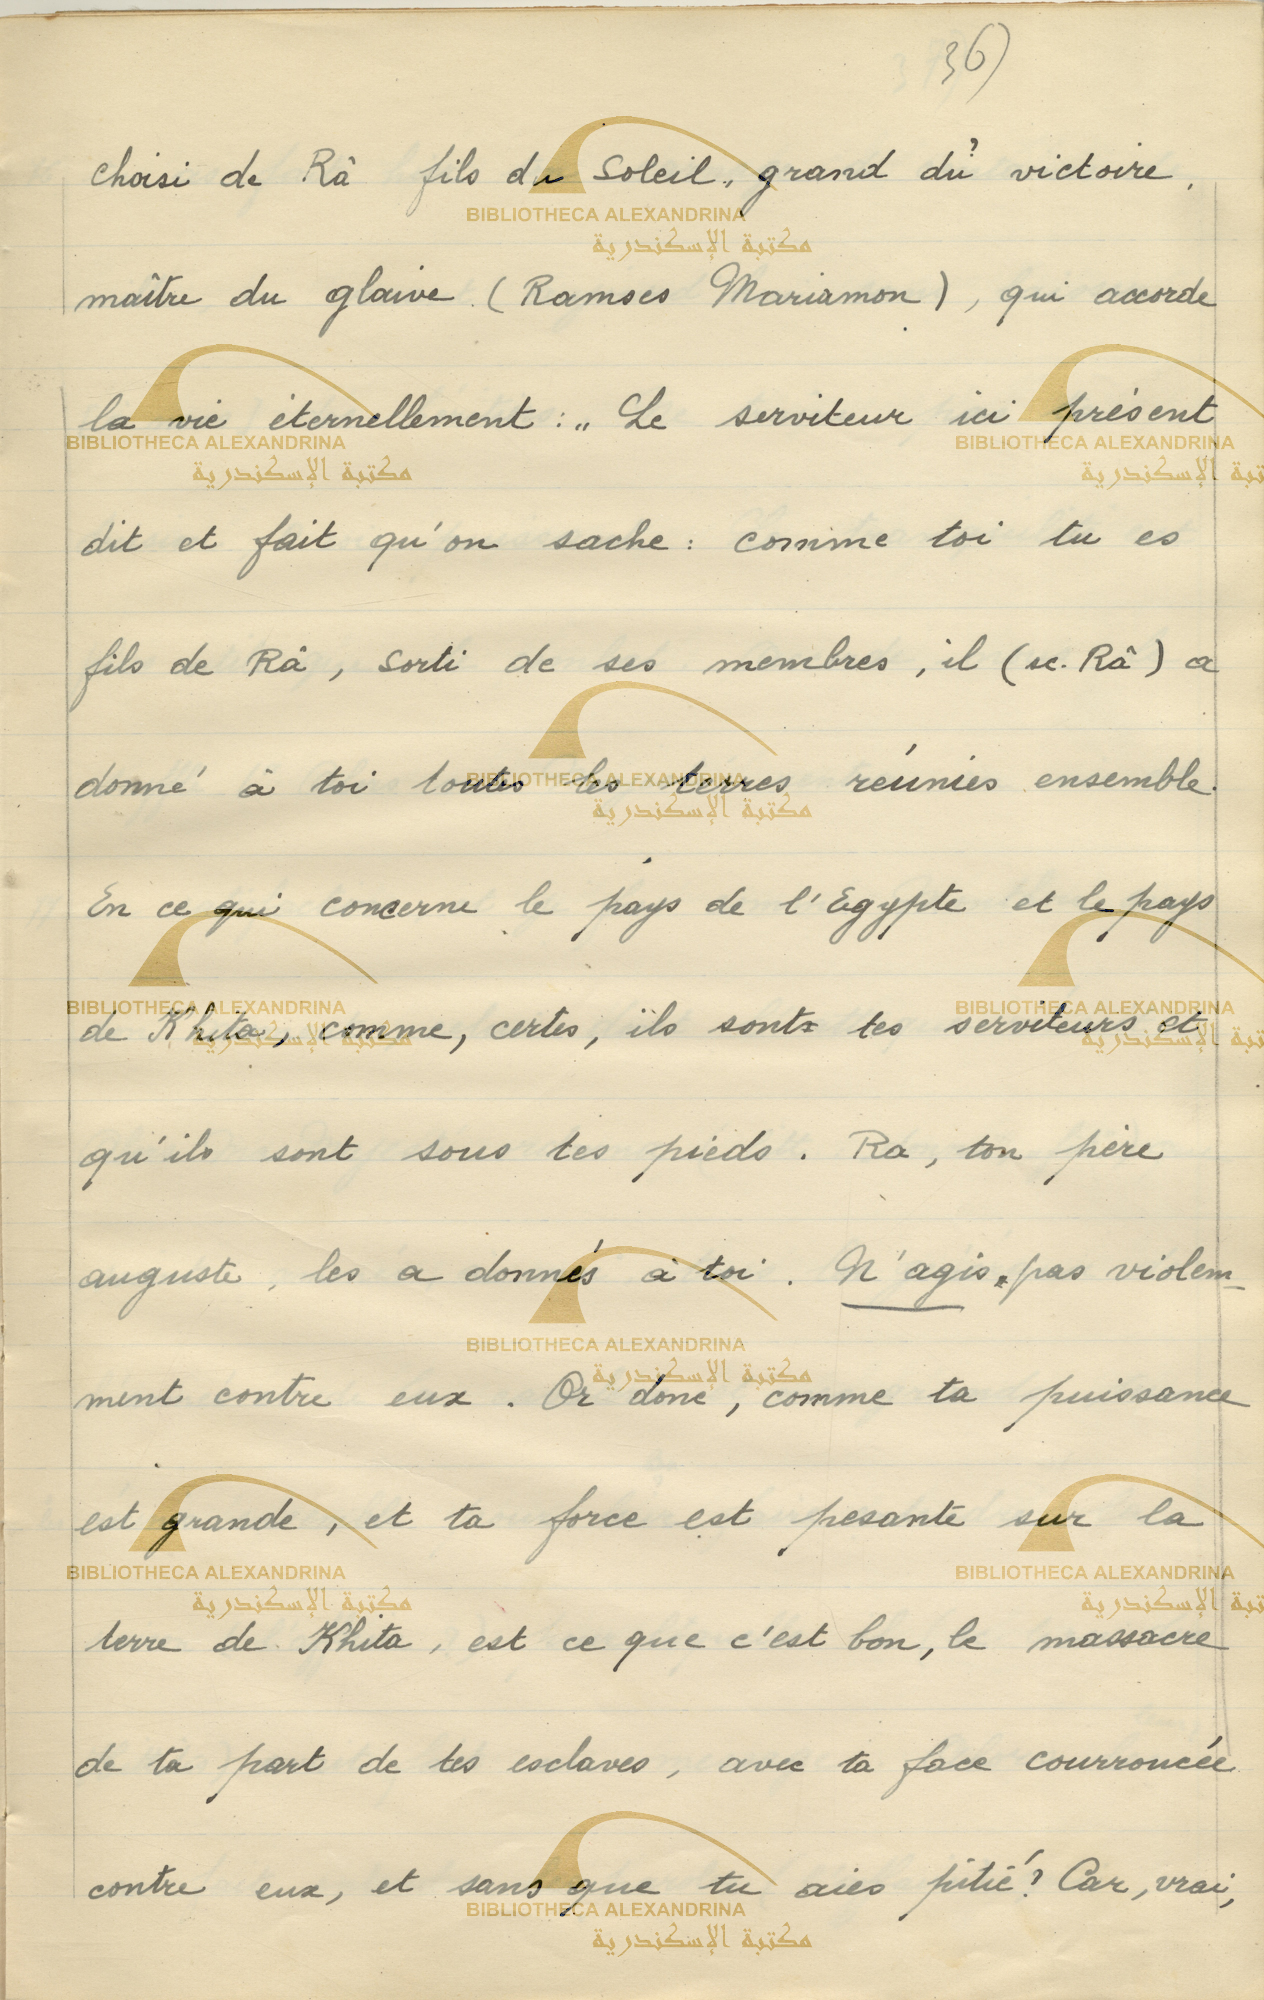 36)
choisi de Râ fils du Soleil„ grand du? victoire,
maître du glaive (Ramses Mariamon), qui accorde
la vie éternellement : „ Le serviteur ici présent
dit et fait qu'on sache : comme toi tu es
fils de Râ, sorti de ses membres, il (sc. Râ) a
donné à toi toutes les terres réunies ensemble.
En ce qui concerne le pays de l'Egypte et le pays
de Khita, comme, certes, ils sont tes serviteurs et
qu'ils sont sous tes pieds. Ra, ton père
auguste, les a donnés à toi. N'agis pas violem-
ment contre eux. Or donc, comme ta puissance
est grande, et ta force est pesante sur la
terre de Khita, est ce que c'est bon, le massacre
de ta part de tes esclaves, avec ta face courroucée
contre eux, et sans que tu aies pitié? Car, vrai,
BIBLIOTHECA ALEXANDRINA
مكتبة الإسكندرية